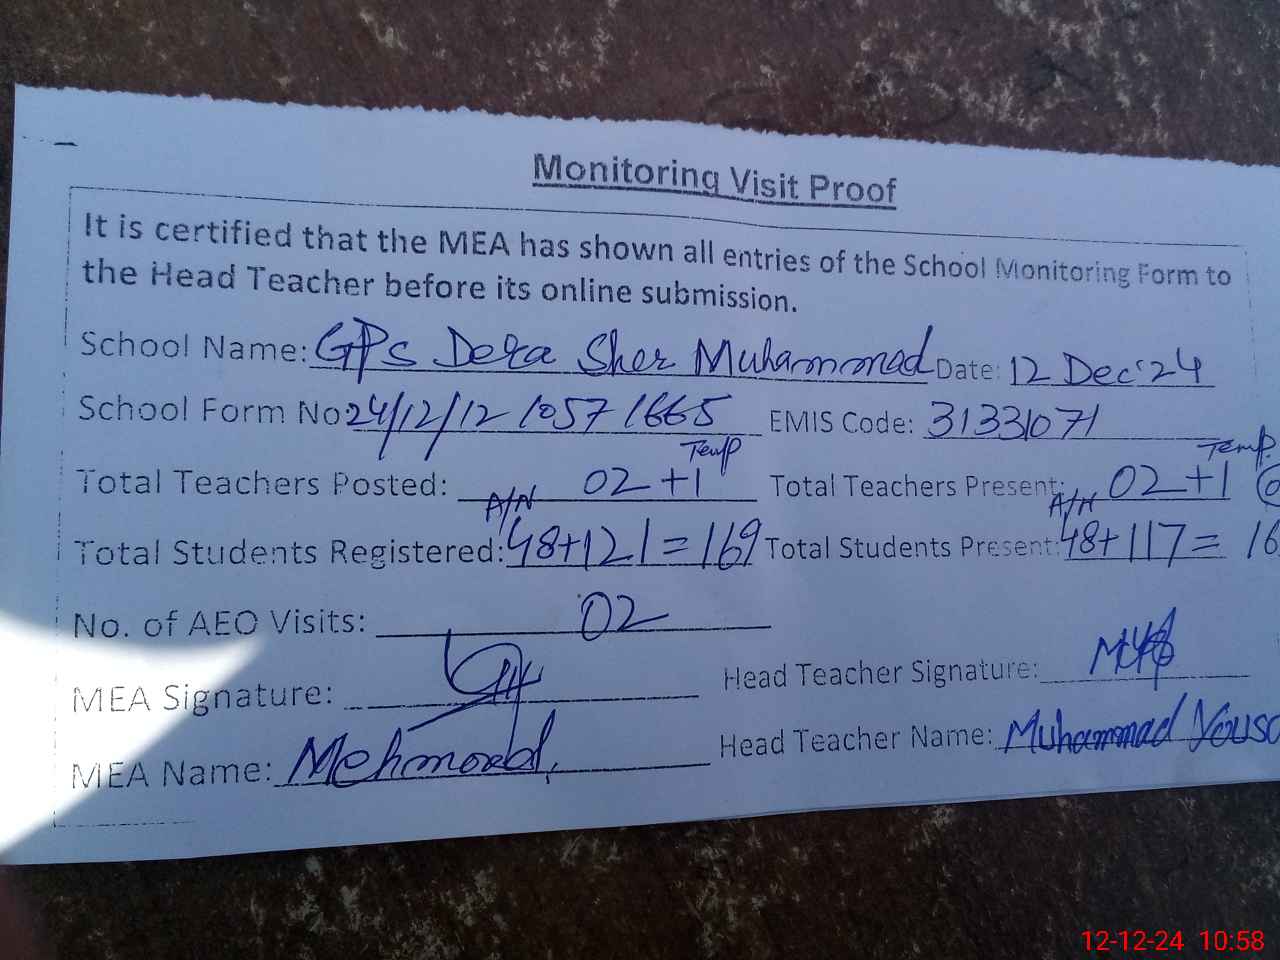 Monitoring Visit Proof
It is certified that the MEA has shown all entries of the School Monitoring Form to
the Head Teacher before its online submission.
School Name: GPs Dera Sher Muhammad Date: 12 Dec'24
School Form No: 24/12/12 1057 1665 EMIS Code: 31331071
Temp Temp.
Total Teachers Posted: 02+1 Total Teachers Present: 02+1
A/N A/N
Total Students Registered: 48+121=169 Total Students Present: 48+117= 16
No. of AEO Visits: 02
MEA Signature: Head Teacher Signature:
MEA Name: Mehmood, Head Teacher Name: Muhammad Yous
12-12-24 10:58